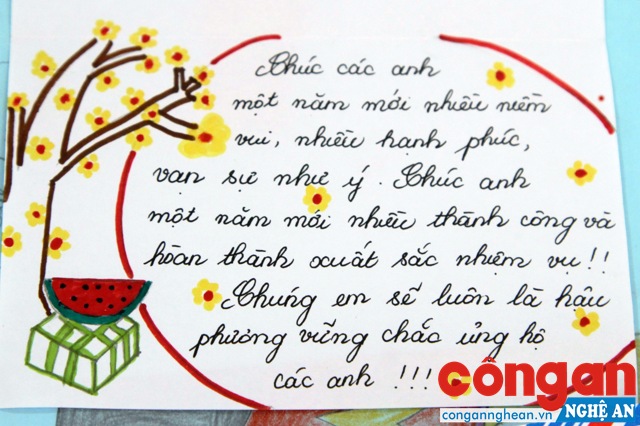 Chúc các anh
một năm mới nhiều niềm
vui, nhiều hạnh phúc,
vạn sự như ý. Chúc anh
một năm mới nhiều thành công và
hoàn thành xuất sắc nhiệm vụ!!
Chúng em sẽ luôn là hậu
phương vững chắc ủng hộ
các anh !!!
côngan
congannghean.vn
NGHỆ AN